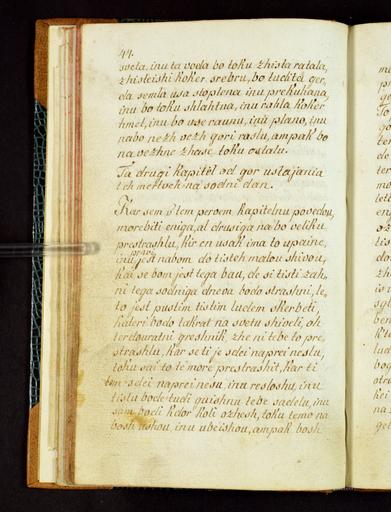 44.
sveta, inu ta voda bo toku zhista ratala,
zhisteishi koker srebru, bo tudita ger,
da semla usa stoplena inu prekuhana,
inu bo toku shlahtna, inu rahla koker
hmel, inu bo use raunu, inu plano, inu
nabo nezh vezh gori raslu, ampak bo
na vezhne zhase toku ostalu.
Ta drugi kapitel od gor ustajania
teh mertveh na sodni dan.
Kar sem v tem pervem kapitelnu povedou,
morebiti eniga, al drusiga nabo veliku
prestrashlu, kir en usak ima to upaine,
inu prou jest nabom do tisteh malou shivou,
kai se bom jest tega bau, de si tisti zah,
ni tega sodniga dneva bodo strashni, le,
to jest pustim tistim ludem skerbeti,
kateri bodo takrat na svetu shiveli, oh
terdouratni greshnik, zhe ni tebe to pre,
strashlu, kar se ti je sdei naprei neslu,
toku sai to te more prestrashit, kar ti
tem sdei naprei nesu, inu resloshu, inu
tistu bode tudi guishnu tebe sadelu, inu
sam bodi kdor koli ozhesh, toku temo na
bosh ushou, inu ubeishou, ampak bosh